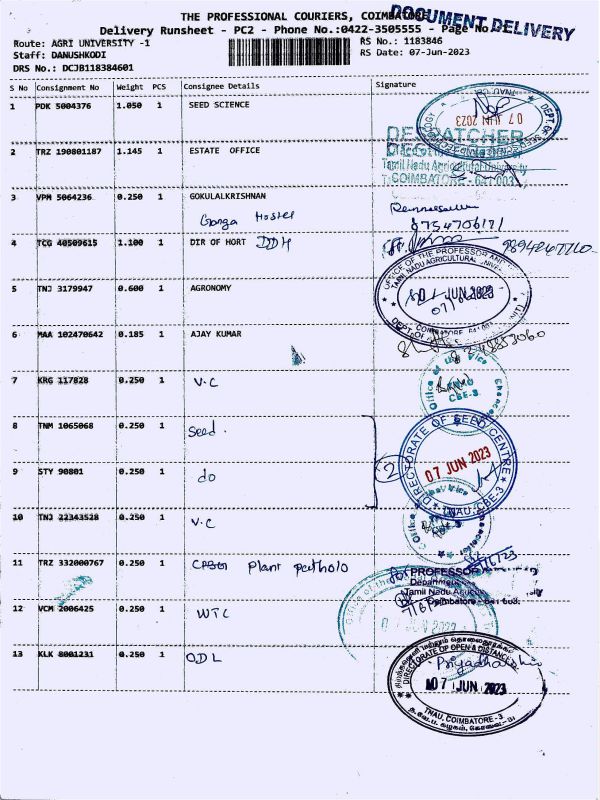 THE PROFESSIONAL COURIERS, COIMBATORE
DOCUMENT DELIVERY
Delivery Runsheet - PC2 - Phone No.:0422-3505555 - Page No.
Route: AGRI UNIVERSITY -1
RS No.: 1183846
Staff: DANUSHKODI
RS Date: 07-Jun-2023
DRS No.: DCJB118384601
S No Consignment No Weight PCS Consignee Details Signature
1 PDK 5004376 1.050 1 SEED SCIENCE
07 JUN 2023
DEPT. OF SEED
DESPATCHER
2 TRZ 190801187 1.145 1 ESTATE OFFICE
Tamil Nadu Agricultural University
COIMBATORE - 641 003
3 VPM 5064236 0.250 1 GOKULALKRISHNAN
Ganga Hostel
8754706171
4 TCG 40509615 1.100 1 DIR OF HORT DDH
9894267710
OFFICE OF THE PROFESSOR AND
TAMIL NADU AGRICULTURAL
5 TNJ 3179947 0.600 1 AGRONOMY
07 JUN 2023
COIMBATORE
6 MAA 102470642 0.185 1 AJAY KUMAR
Office of the Vice
7 KRG 117828 0.250 1 V.C
CBE-3
8 TNM 1065068 0.250 1 Seed.
DIRECTORATE OF SEED CENTRE
07 JUN 2023
TNAU, CBE-3
2
9 STY 90801 0.250 1 do
10 TNJ 22343528 0.250 1 V.C
11 TRZ 332000767 0.250 1 CPBG Plant patholo
for PROFESSOR
Department
Tamil Nadu
Coimbatore - 641 003.
12 VCM 2006425 0.250 1 WTC
13 KLK 8001231 0.250 1 ODL
DIRECTORATE OF OPEN & DISTANCE
Priyadharshini
07 JUN 2023
TNAU, COIMBATORE - 3